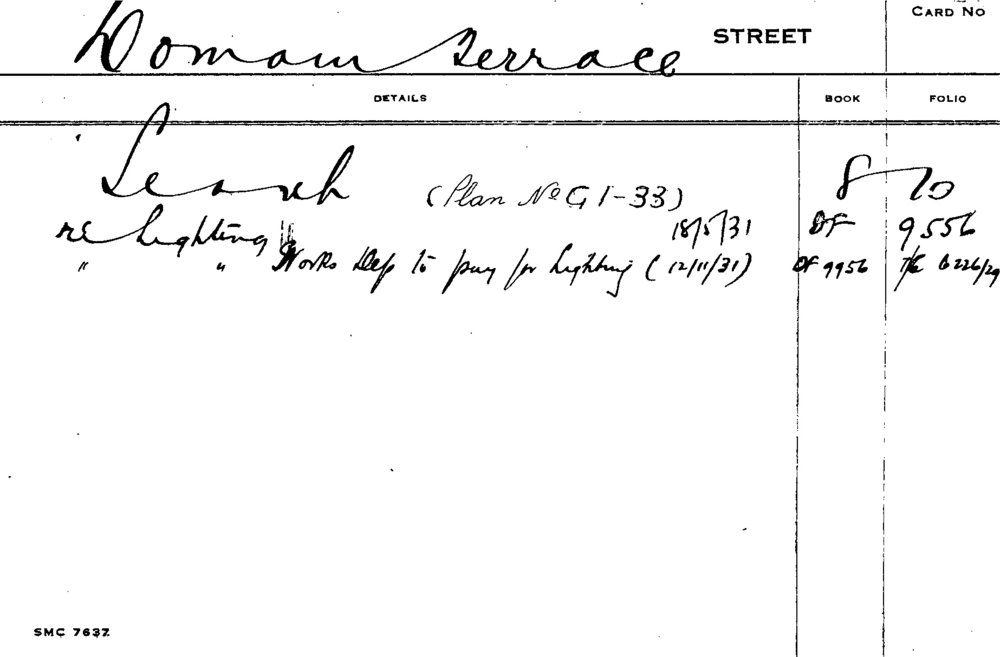 CARD NO
Domain Terrace STREET
DETAILS BOOK FOLIO
Search (Plan No G1-33) 8 70
re Lighting 18/5/31 DF 9556
" " Works Dep to pay for Lighting (12/11/31) DF 9956 6226/29
SMC 7637